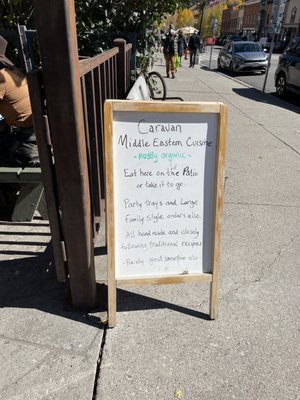 Caravan
Middle Eastern Cuisine
- mostly organic -
Eat here on the Patio
or take it to go...
Party trays and Large
Family Style orders also.
All handmade and closely
following traditional recipes
Really good smoothie also